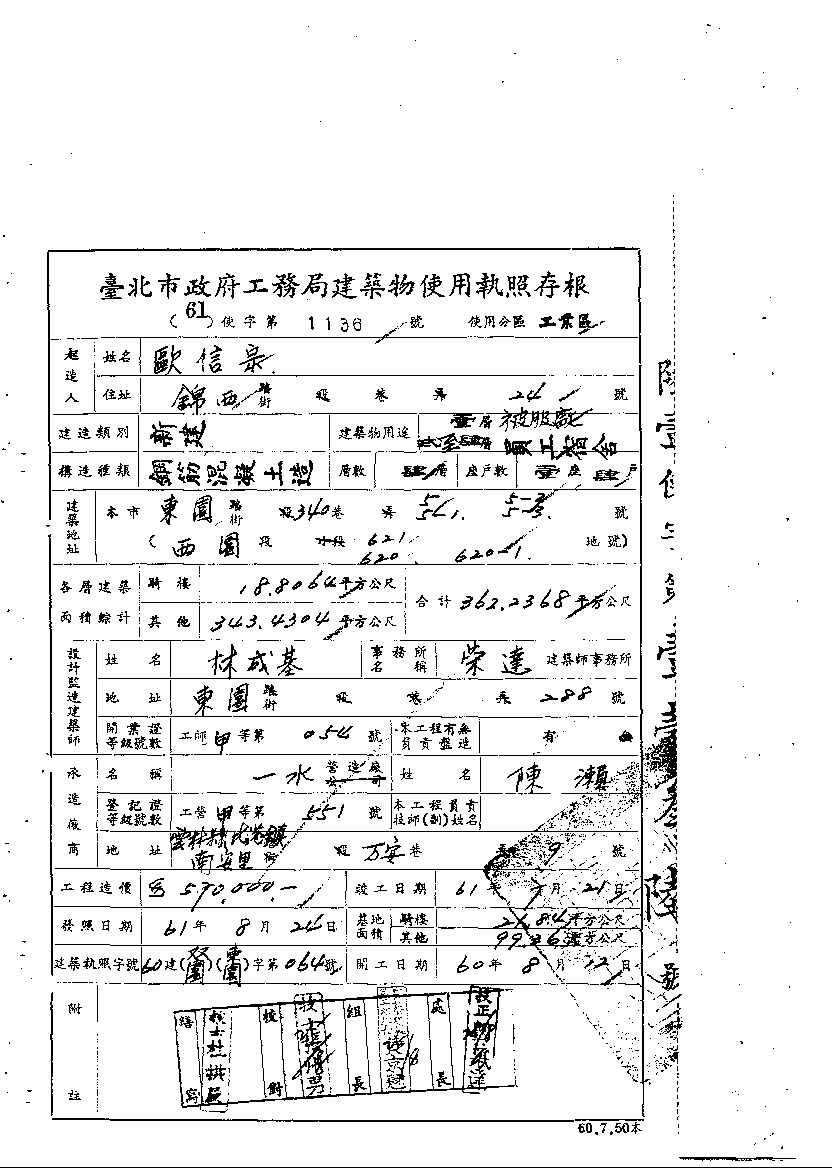 臺北市政府工務局建築物使用執照存根
(61)使字第 1136 號 使用分區 工業區
起造人 姓名 歐信泉
住址 錦西 路街 段 巷 弄 24 號
建造類別 新建 建築物用途 壹層被服廠 貳至肆層員工宿舍
構造種類 鋼筋混凝土造 層數 肆層 座戶數 壹座 肆戶
建築地址 本市 東園 路街 段 340 巷 弄 5 5-1. 5-2 5-3. 號
( 西園 段 小段 621 620. 620-1. 地號)
各層建築面積綜計 騎樓 18.8064 平方公尺 合計 362.2368 平方公尺
其他 343.4304 平方公尺
設計監造建築師 姓名 林成基 事務所名稱 榮達 建築師事務所
地址 東園 路街 段 巷 弄 288 號
開業證等級號數 工師 甲 等第 054 號 本工程有無負責監造 有 無
承造廠商 名稱 一水 營造廠公司 姓名 陳瀨
登記證等級號數 工營 甲 等第 551 號 本工程負責技師(副)姓名
地址 雲林縣北港鎮南安里 街 段 万安 巷 弄 9 號
工程造價 570,000.- 竣工日期 61 年 月 21 日
發照日期 61 年 8 月 24 日 基地面積 騎樓 21.84 平方公尺
其他 99.36 平方公尺
建築執照字號 60 建( )( )字第 064 號 開工日期 60 年 8 月 12 日
附註 繕寫 校對 組長 處長
60.7.50本